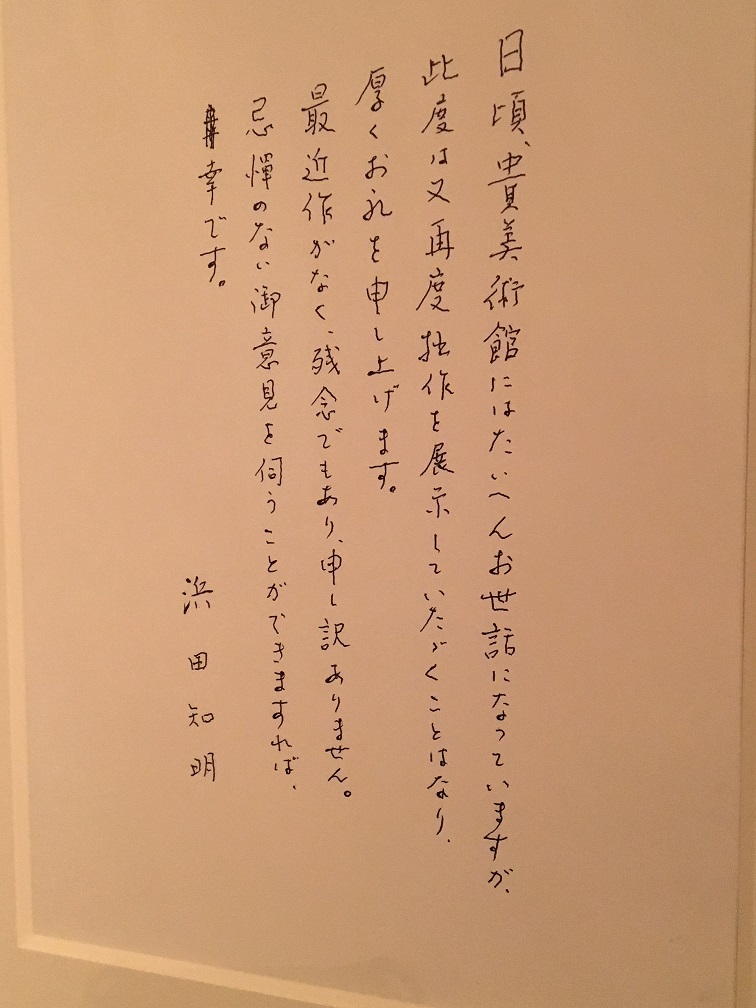 日頃、貴美術館にはたいへんお世話になっていますが、
此度は又再度拙作を展示していたゞくことはなり、
厚くお礼を申し上げます。
最近作がなく、残念でもあり、申し訳ありません。
忌憚のない御意見を伺うことができますれば、
幸です。
浜田知明